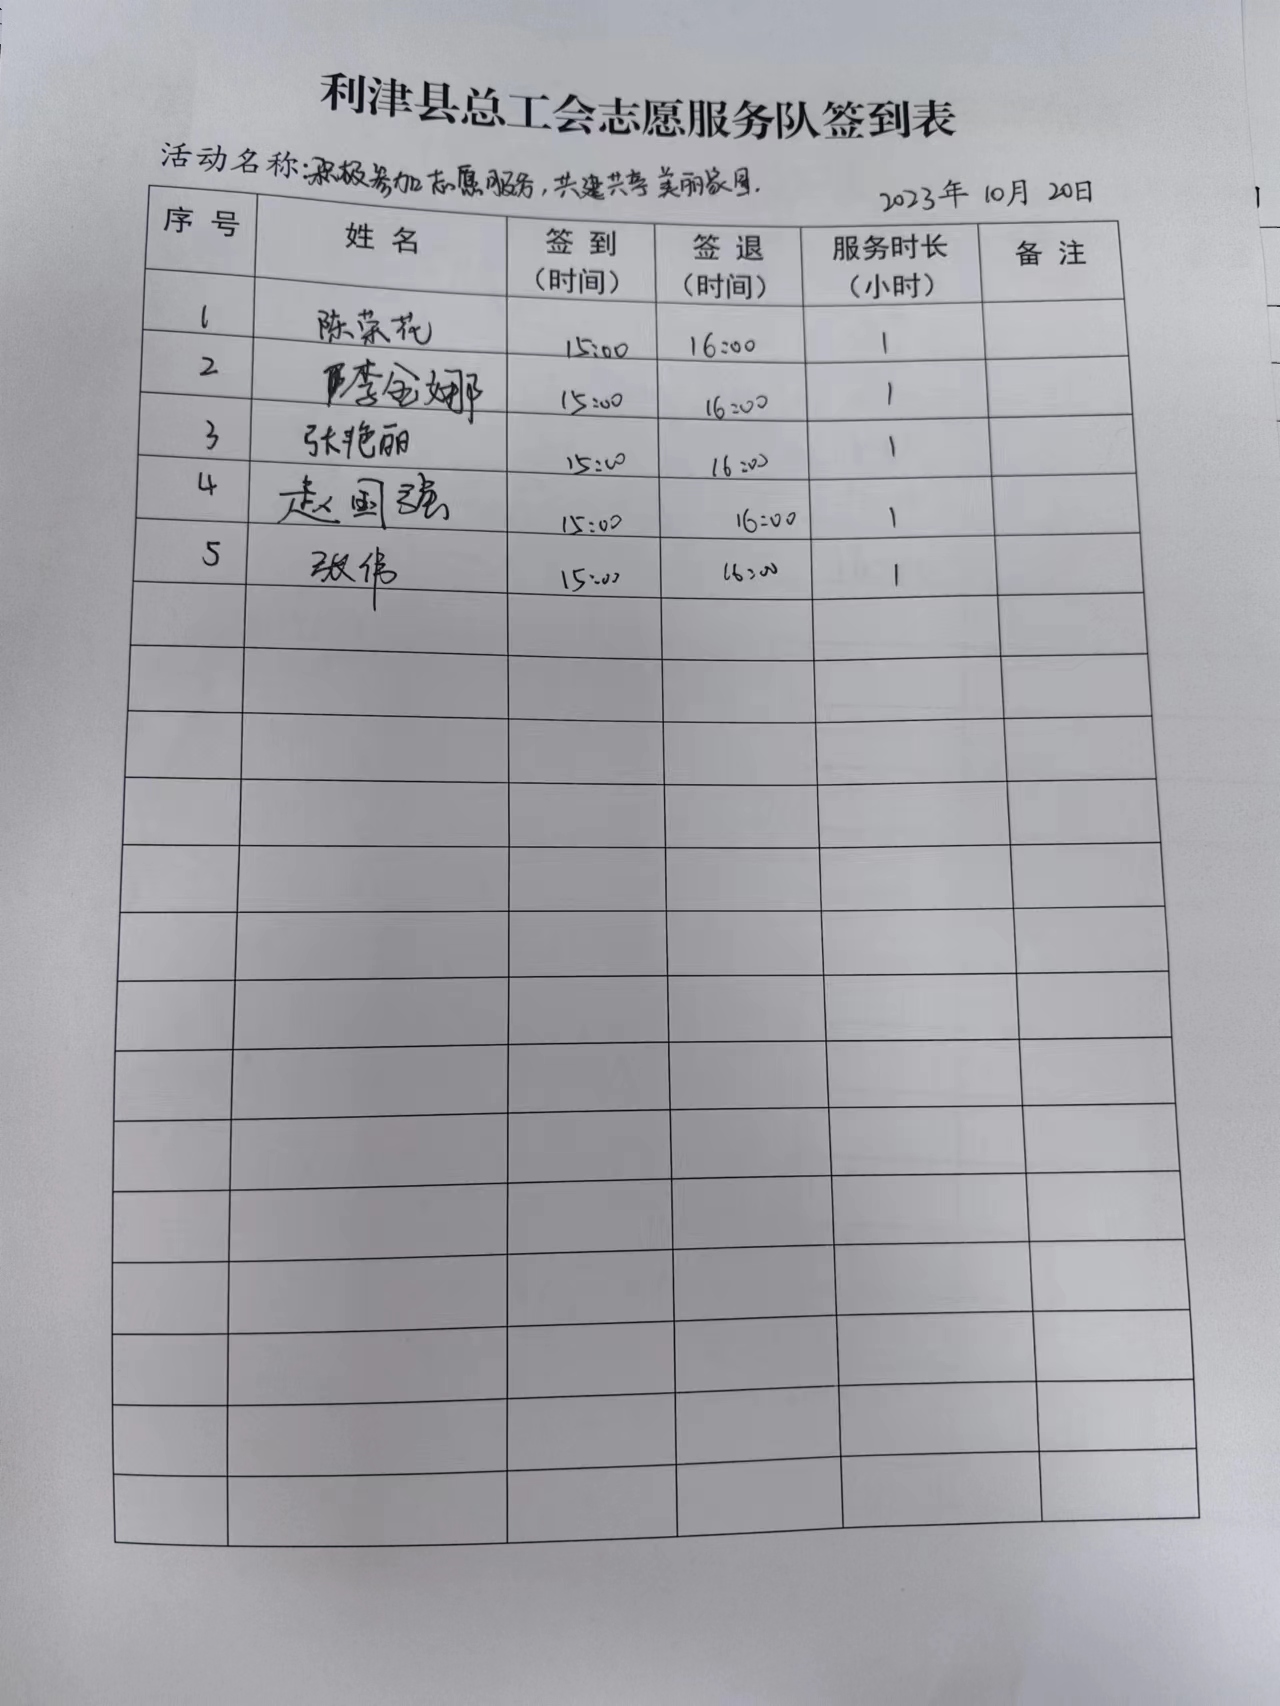 利津县总工会志愿服务队签到表
活动名称:积极参加志愿服务,共建共享美丽家园.
2023年 10月 20日
序号 姓名 签到(时间) 签退(时间) 服务时长(小时) 备注
1 陈荣花 15:00 16:00 1
2 李金娜 15:00 16:00 1
3 张艳丽 15:00 16:00 1
4 赵国强 15:00 16:00 1
5 张伟 15:00 16:00 1